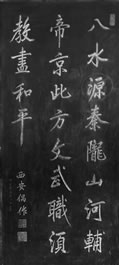 八水源秦隴山河輔
帝京此方文武職須
教盡和平
西安偶作